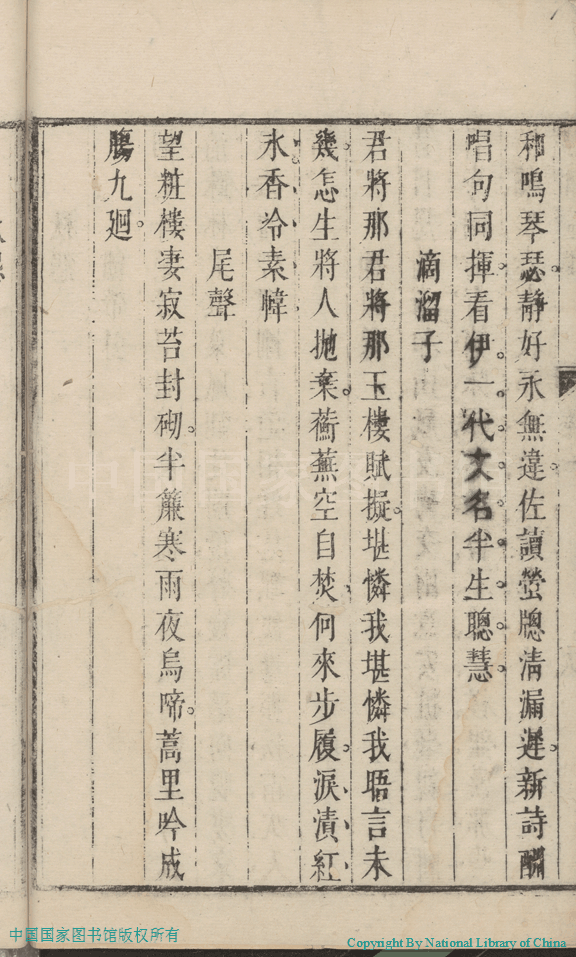 和鳴琴瑟靜好永無違佐讀螢牕清漏遲新詩酬
唱句同揮看伊一代文名半生聰慧
滴溜子
君將那君將那玉樓賦擬堪憐我堪憐我晤言未
幾怎生將人拋棄蘅蕪空自焚何來步履淚漬紅
氷香冷素幃
尾聲
望粧樓妻寂苔封砌半簾寒雨夜烏啼蒿里吟成
腸九廻
中国国家图书馆版权所有
Copyright By National Library of China